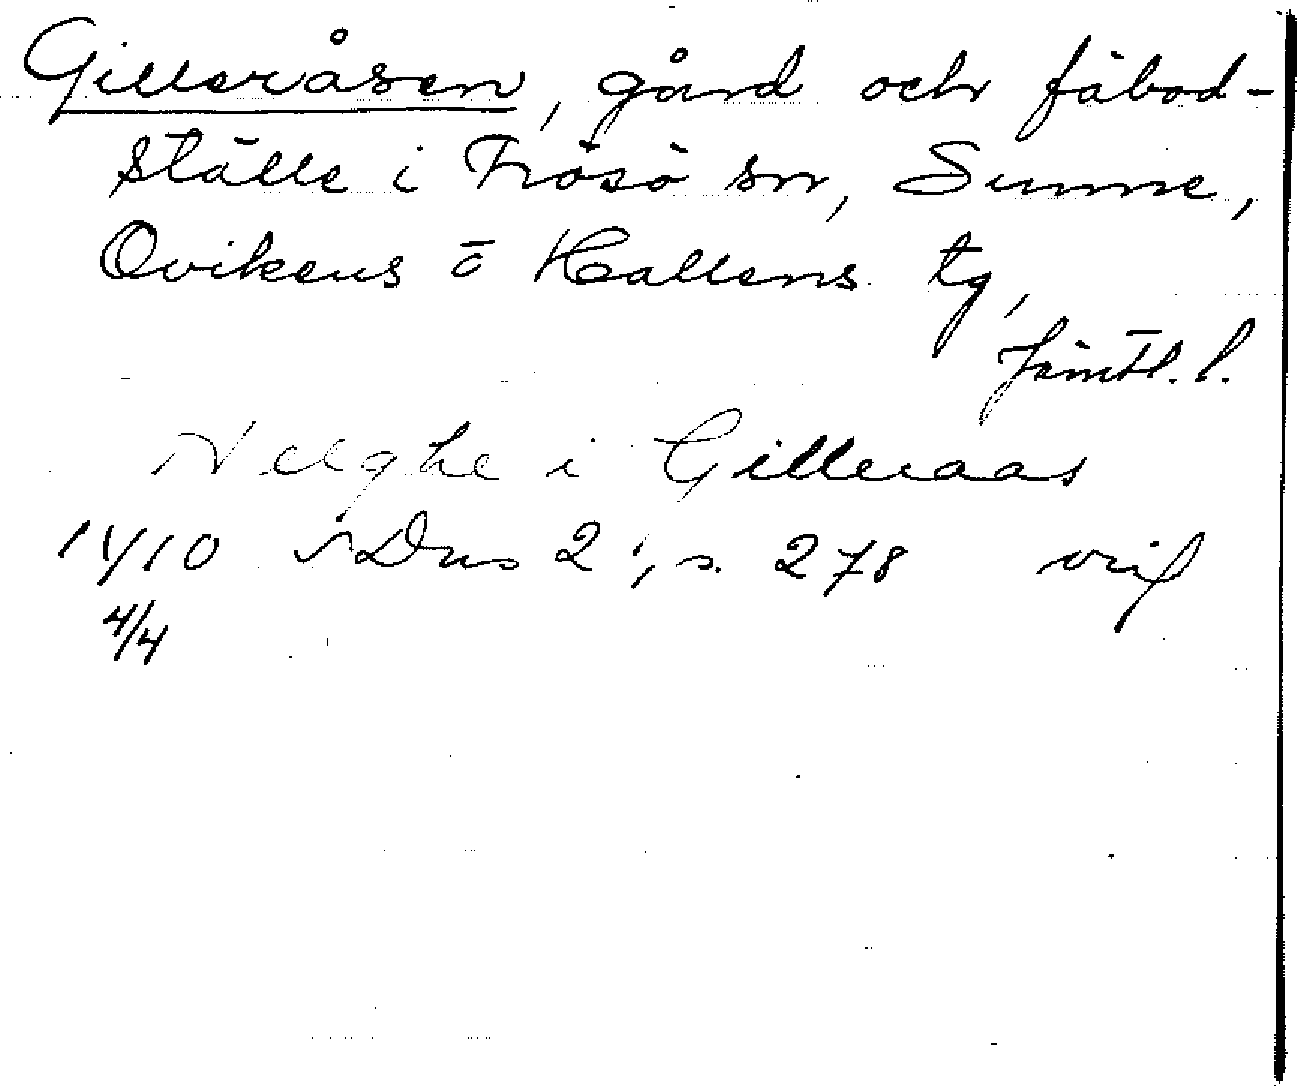 Gilleråsen, gård och fäbod-
ställe i Frösö sn, Sunne,
Ovikens o Hallens tg,
Jämtl. l.
Neeghe i Gilleraas
1410 Dns 2, s. 278
4/4